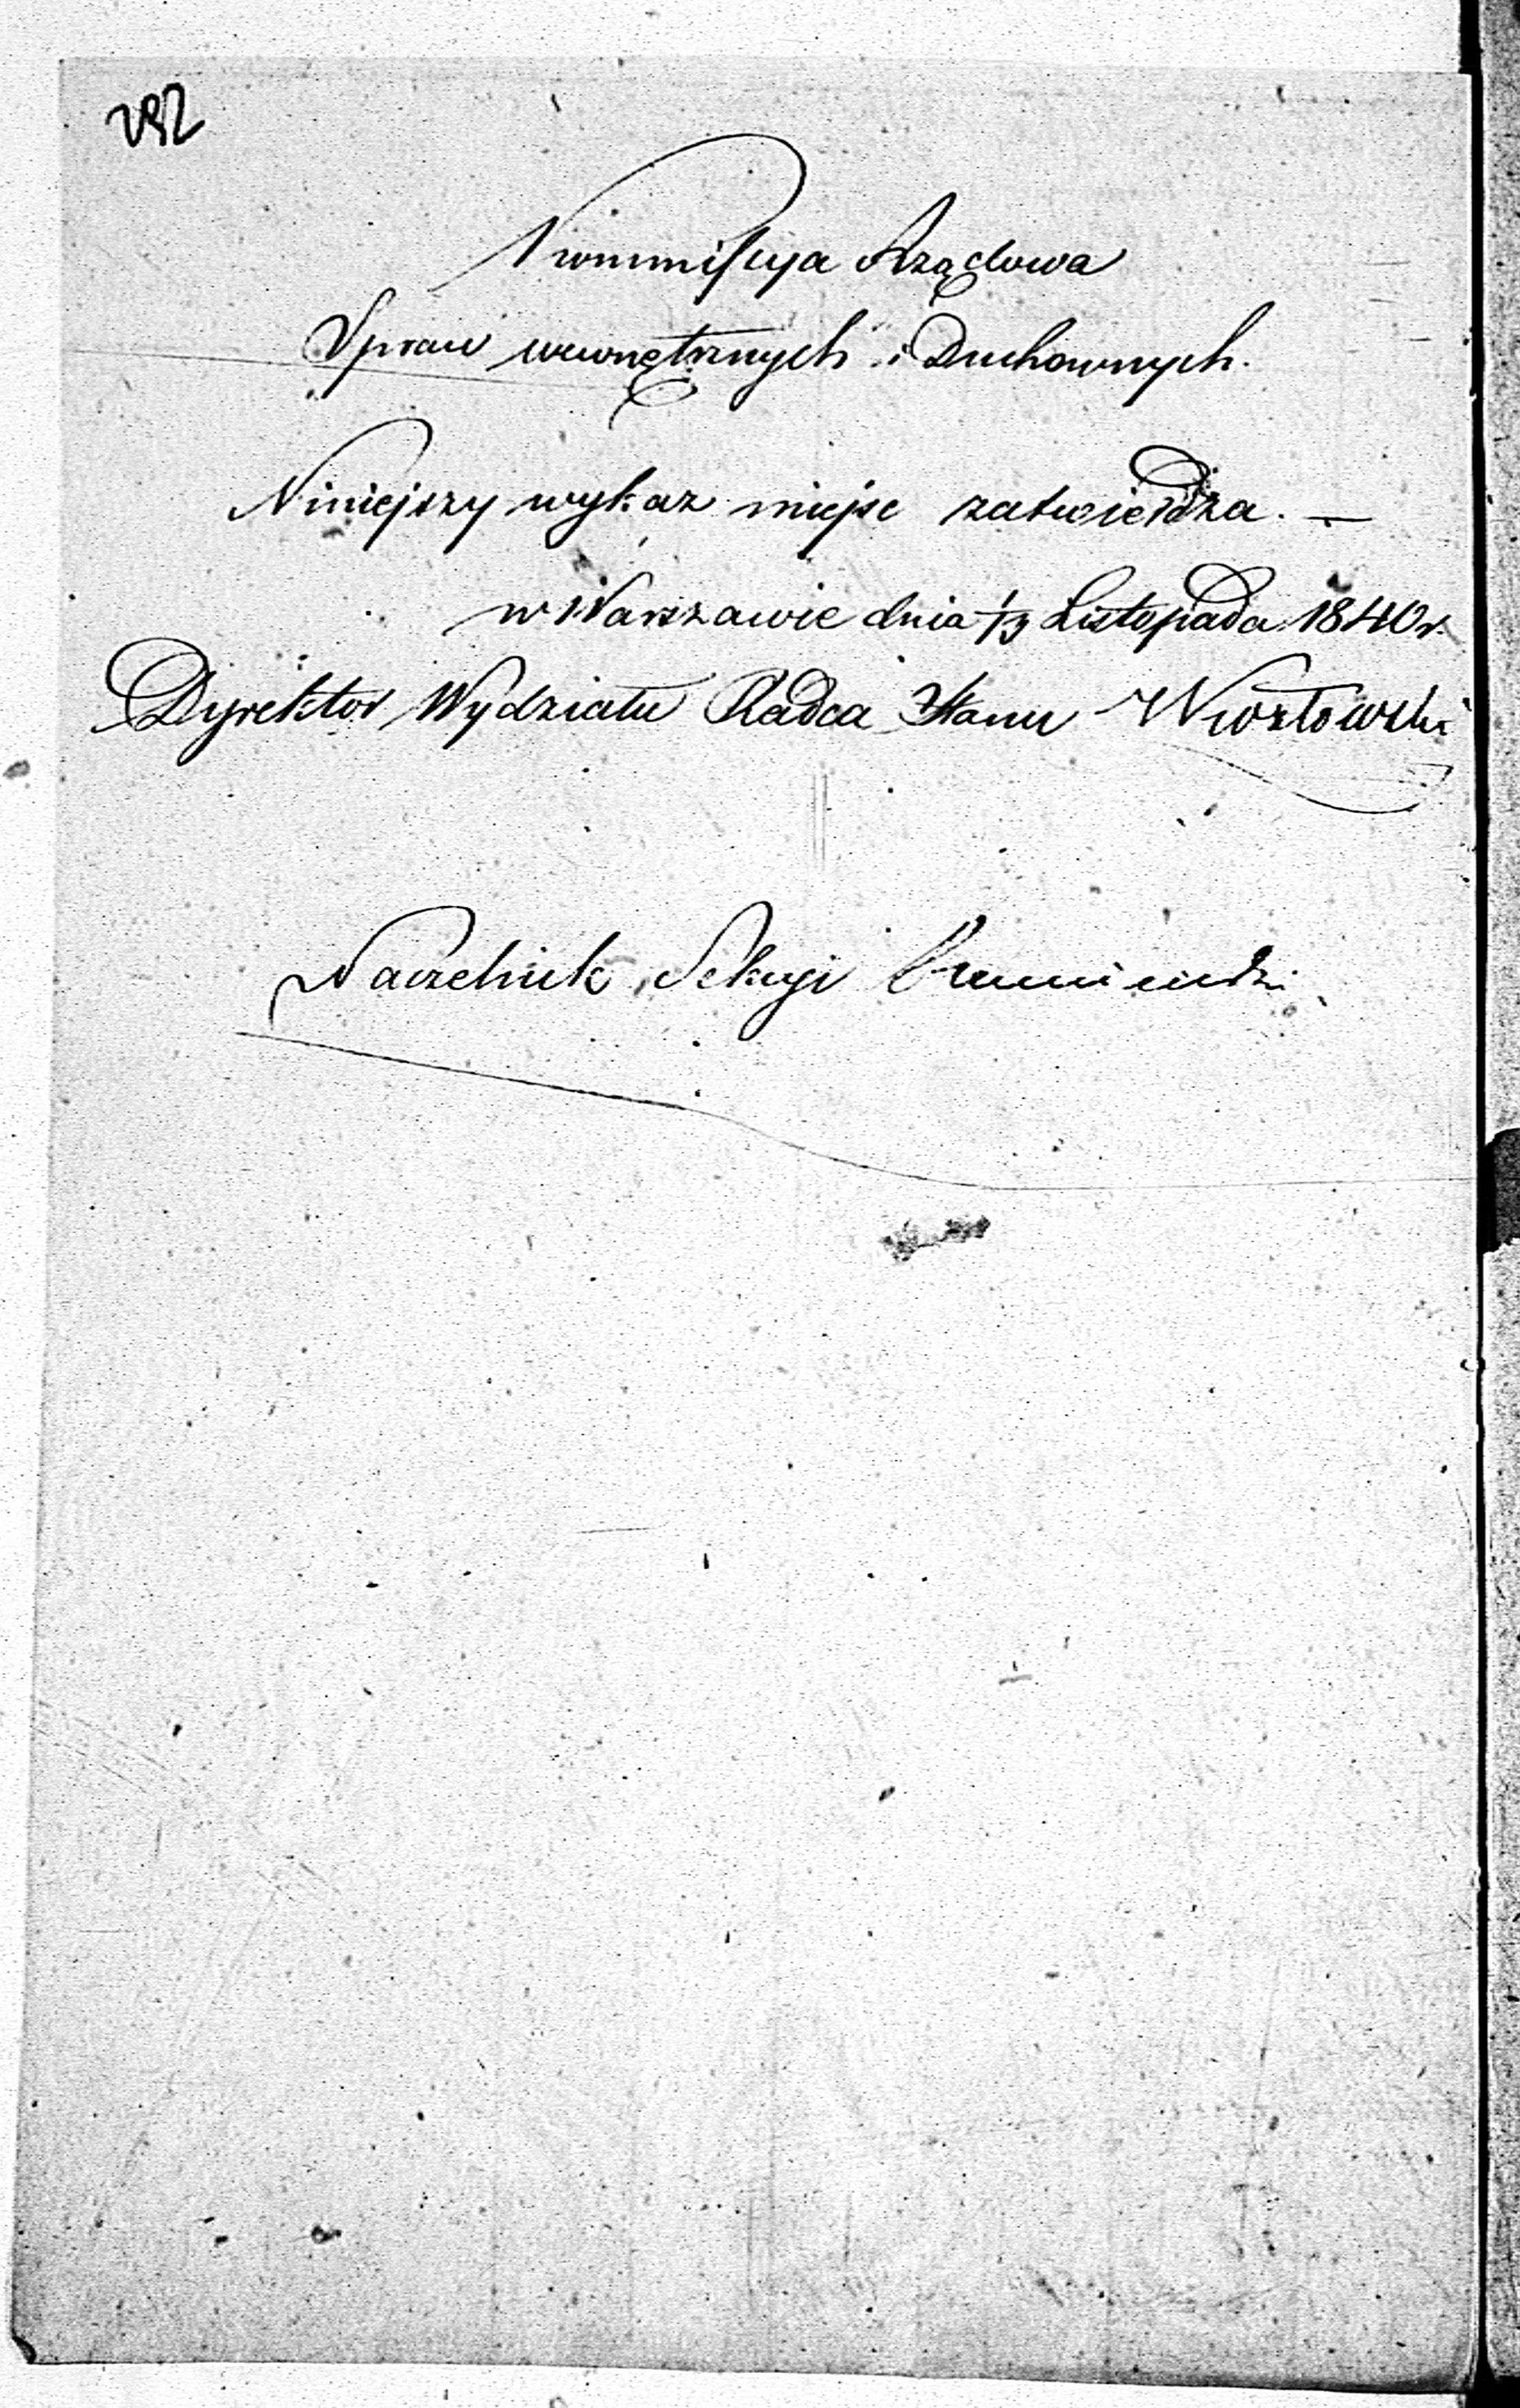 292
Kommissya Rządowa
Spraw wewnętrznych i Duchownych.
Niniejszy wykaz miejsc zatwierdza. —
w Warszawie dnia 1/13 Listopada 1840 r.
Dyrektor Wydziału Radca Stanu
Naczelnik Sekcyi